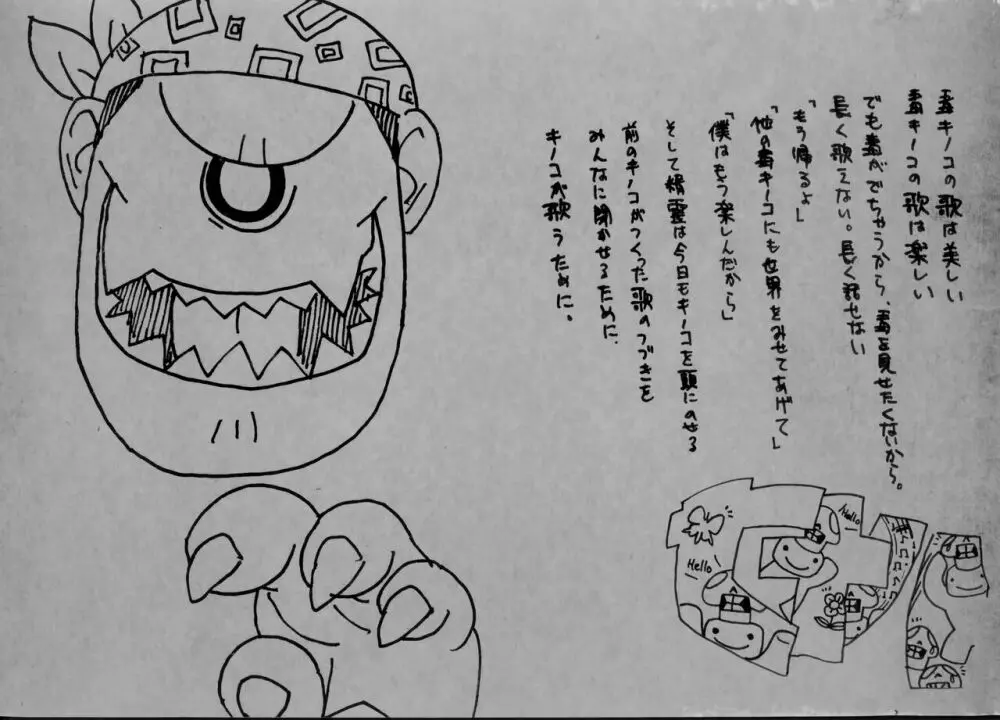 毒キノコの歌は美しい
毒キノコの歌は楽しい
でも毒がでちゃうから、毒を見せたくないから。
長く歌えない。長く話せない
「もう帰るよ」
「他の毒キノコにも世界をみせてあげて」
「僕はもう楽しんだから」
そして精霊は今日もキノコを頭にのせる
前のキノコがつくった歌のつづきを
みんなに聞かせるために、
キノコが歌うために。
Hello
Hello